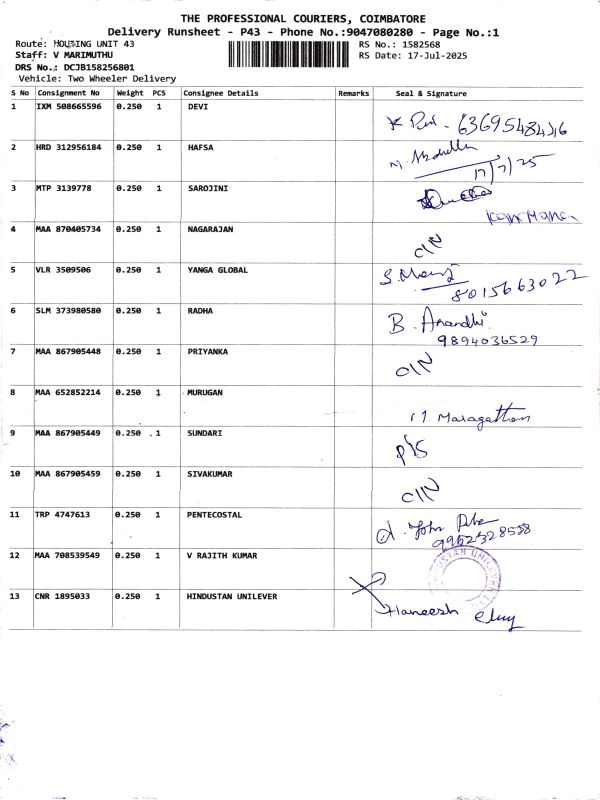 THE PROFESSIONAL COURIERS, COIMBATORE
Delivery Runsheet - P43 - Phone No.:9047080280 - Page No.:1
Route: HOUSING UNIT 43
RS No.: 1582568
Staff: V MARIMUTHU
RS Date: 17-Jul-2025
DRS No.: DCJB158256801
Vehicle: Two Wheeler Delivery
S No Consignment No Weight PCS Consignee Details Remarks Seal & Signature
1 IXM 508665596 0.250 1 DEVI
2 HRD 312956184 0.250 1 HAFSA
17/7/25
3 MTP 3139778 0.250 1 SAROJINI
4 MAA 870405734 0.250 1 NAGARAJAN
5 VLR 3509506 0.250 1 YANGA GLOBAL
8015663022
6 SLM 373980580 0.250 1 RADHA B. Anandhi
9894036529
7 MAA 867905448 0.250 1 PRIYANKA
8 MAA 652852214 0.250 1 MURUGAN
9 MAA 867905449 0.250 1 SUNDARI
10 MAA 867905459 0.250 1 SIVAKUMAR
11 TRP 4747613 0.250 1 PENTECOSTAL
12 MAA 708539549 0.250 1 V RAJITH KUMAR
13 CNR 1895033 0.250 1 HINDUSTAN UNILEVER Haneesh